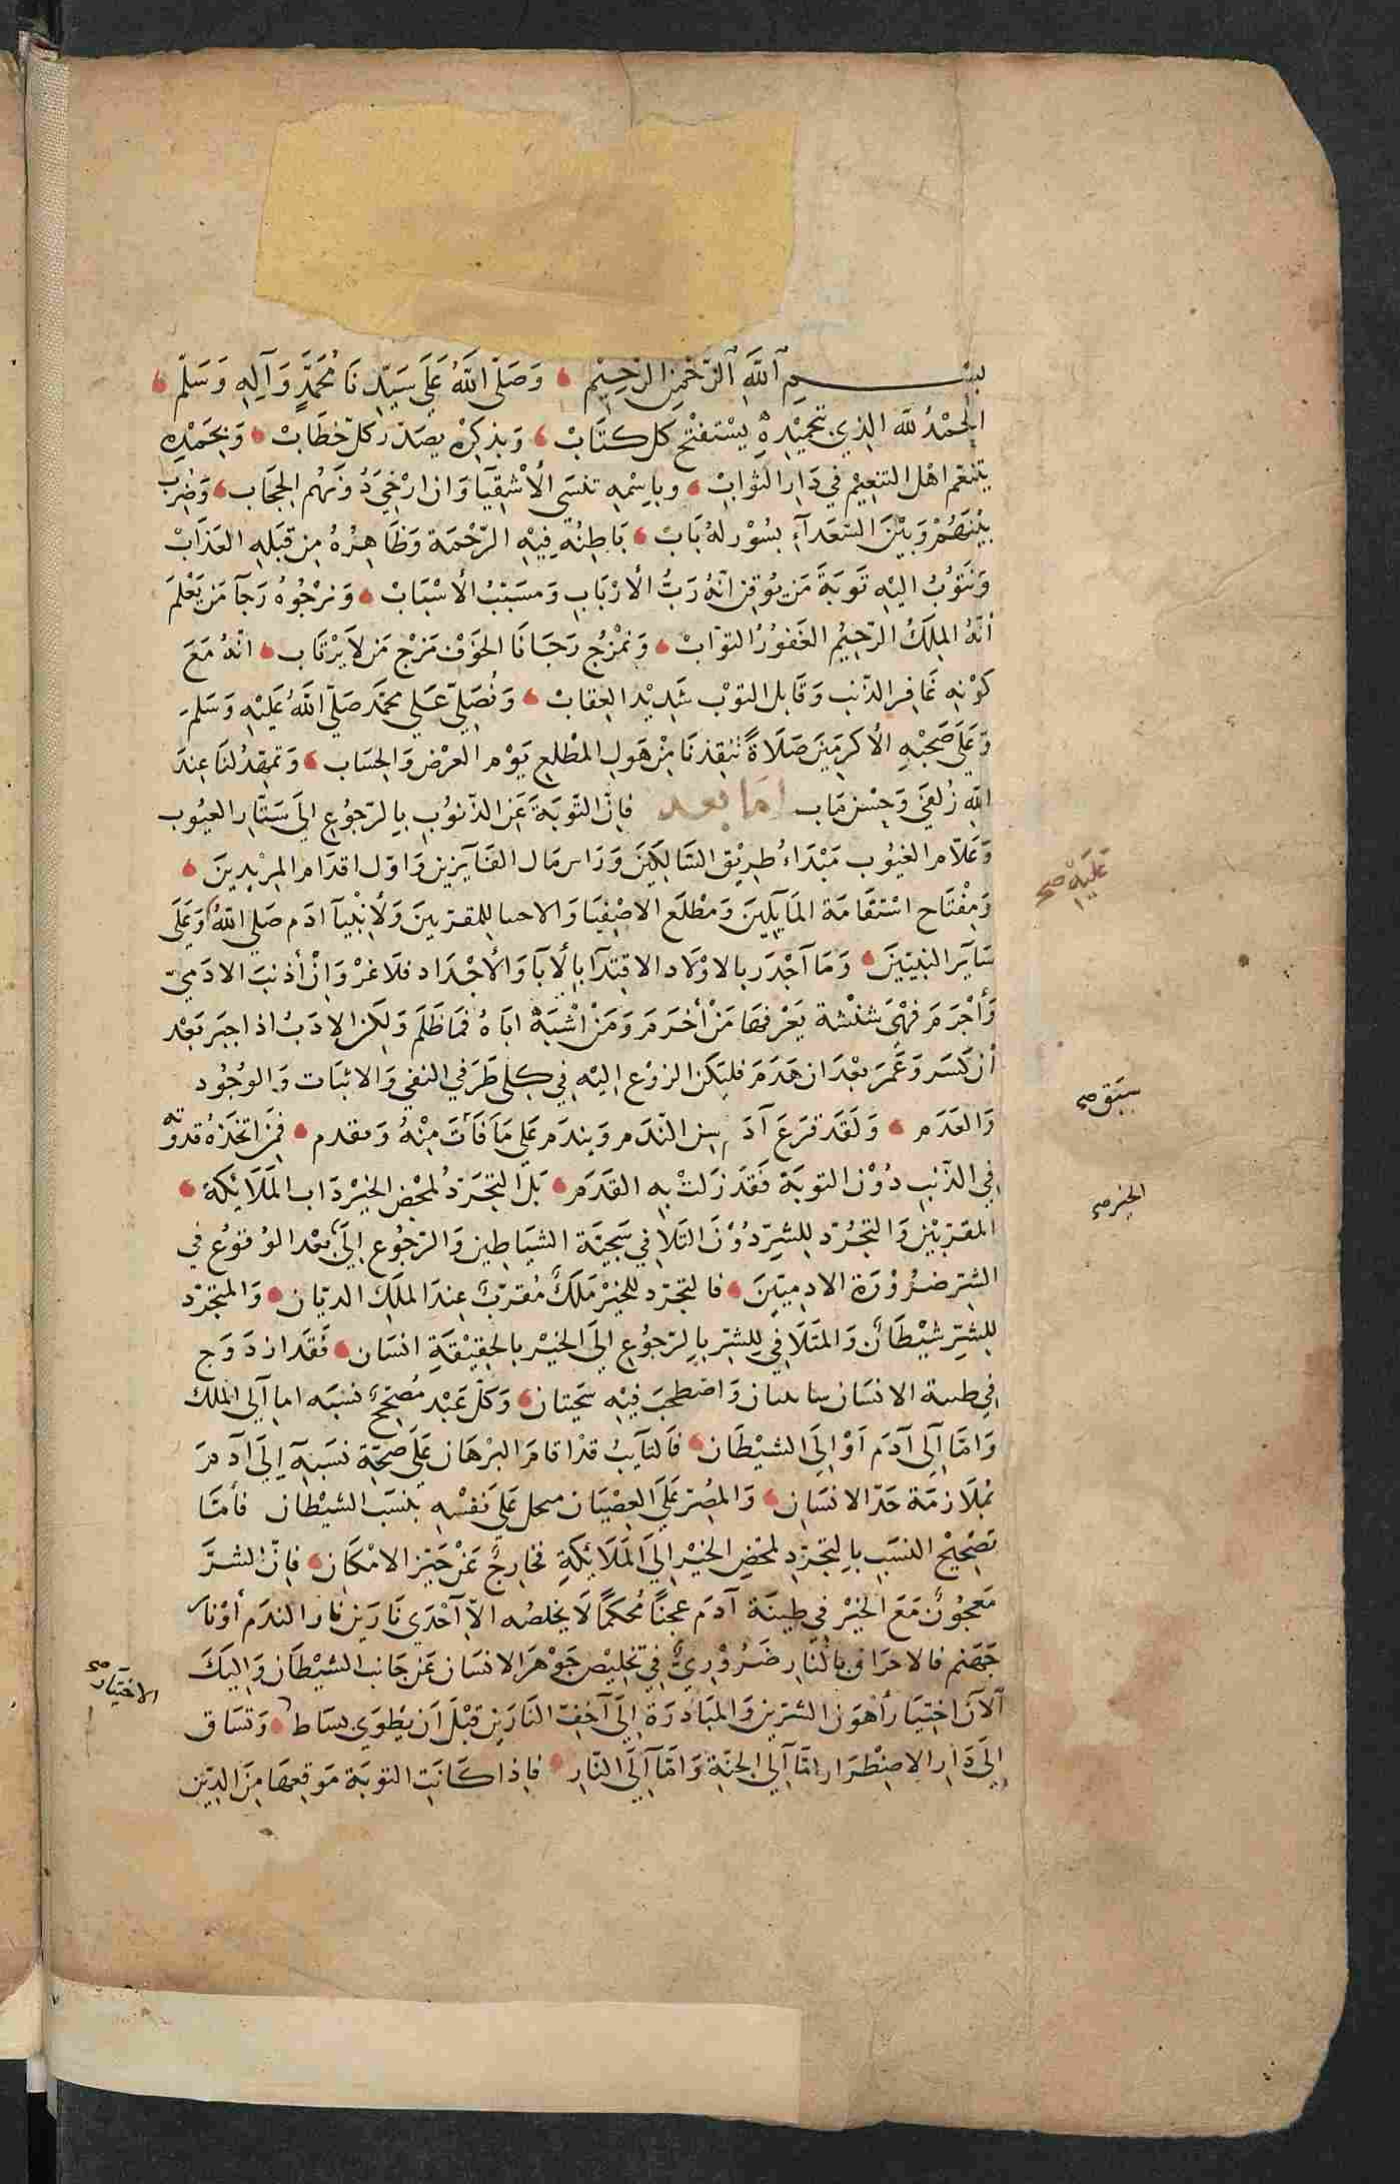 بسم الله الرحمن الرحيم ، وصلى الله على سيدنا محمد وآله وسلم ،
الحمد لله الذي بتحميده يستفتح كل كتاب ، وبذكره يصدر كل خطاب ، وبحمده
يتنعم اهل التنعيم في دار الثواب ، وباسمه تتسى الأشقيا وان ارخي دونهم الحجاب ، وضرب
بينهم وبين السعدآء بسور له باب ، باطنه فيه الرحمة وظاهره من قبله العذاب
ونتوب اليه توبة من يوقن انه رب الأرباب ومسبب الأسباب ، ونرجوه رجآ من يعلم
انه الملك الرحيم الغفور التواب ، ونمزج رجانا الخوف مزج من لا يرتاب ، انه مع
كونه غافر الذنب وقابل التوب شديد العقاب ، ونصلي على محمد صلى الله عليه وسلم
وعلى صحبه الأكرمين صلاة تنقذنا من هول المطلع يوم العرض والحساب ، وتمهد لنا عند
الله زلفى وحسن ماب اما بعد فان التوبة عن الذنوب بالرجوع الى ستار العيوب
وعلام الغيوب مبداء طريق السالكين وراس مال الفايزين واول اقدام المريدين ،
ومفتاح استقامة المايلين ومطلع الاصفيا والاحسا للمقربين ولأنبيآ ادم صلى الله وعلى
سآير النبيين ، وما آجدر بالاولاد الاقتدآ بالأبآ والأجداد فلا غرو ان أذنب الادمي
وأجرم فهي شنشة يعرفها من أخرم ومن اشبه اباه فما ظلم ولكن الادب اذا جبر بعد
أن كسر وعمر بعد ان هدم فليكن الزوع اليه في كلى طرفي النفي والاثبات والوجود
والعدم ، ولقد قرع آدم سن الندم وبندم على ما فات منه وىقدم ، فمن اتخذه قدوة
في الذنب دون التوبة فقد زلت به القدم ، بل التجرد لمحض الخير داب الملائكة ،
المقربين والتجرد للشر دون التلافي سجية الشياطين والرجوع الى بعد الوقوع في
الشر ضرورة الادميين ، فالتجرد للخير ملك مقرب عند الملك الديان ، والمتجرد
للشر شيطان والمتلافي للشر بالرجوع الى الخير بالحقيقة انسان ، فقد ازدوج
في طىىة الانسان ساىىان واصطحب فيه سجيتان ، وكل عبد مصحح نسبه اما آلى الملك
واما آلى آدم او الى الشيطان ، فالتآيب قد اقام البرهان على صحة نسبه الى آدم
بملازمة حد الانسان ، والمصر على العصيان مسجل على نفسه بنسب الشيطان فأما
تصحيح النسب بالتجرد لمحض الخير الى الملائكة فخارج عن حيز الامكان ، فان الشر
معجون مع الخير في طينة آدم عجنا محكما لا يخلصه الا آحدي نارين نار الندم أو نار
جهنم فالاحراق بالنار ضروري في تخليص جوهر الانسان عن جانب الشيطان واليك
الآن اختيار أهون الشرين والمبادرة الى آخف النارين قبل ان يطوى بساط ، وتساق
الى دار الاضطرار اما آلى الجنة واما آلى النار ، فاذا كانت التوبة موقعها من الدين
عليه صح
سبق صح
الخير صح
الاختيار صح